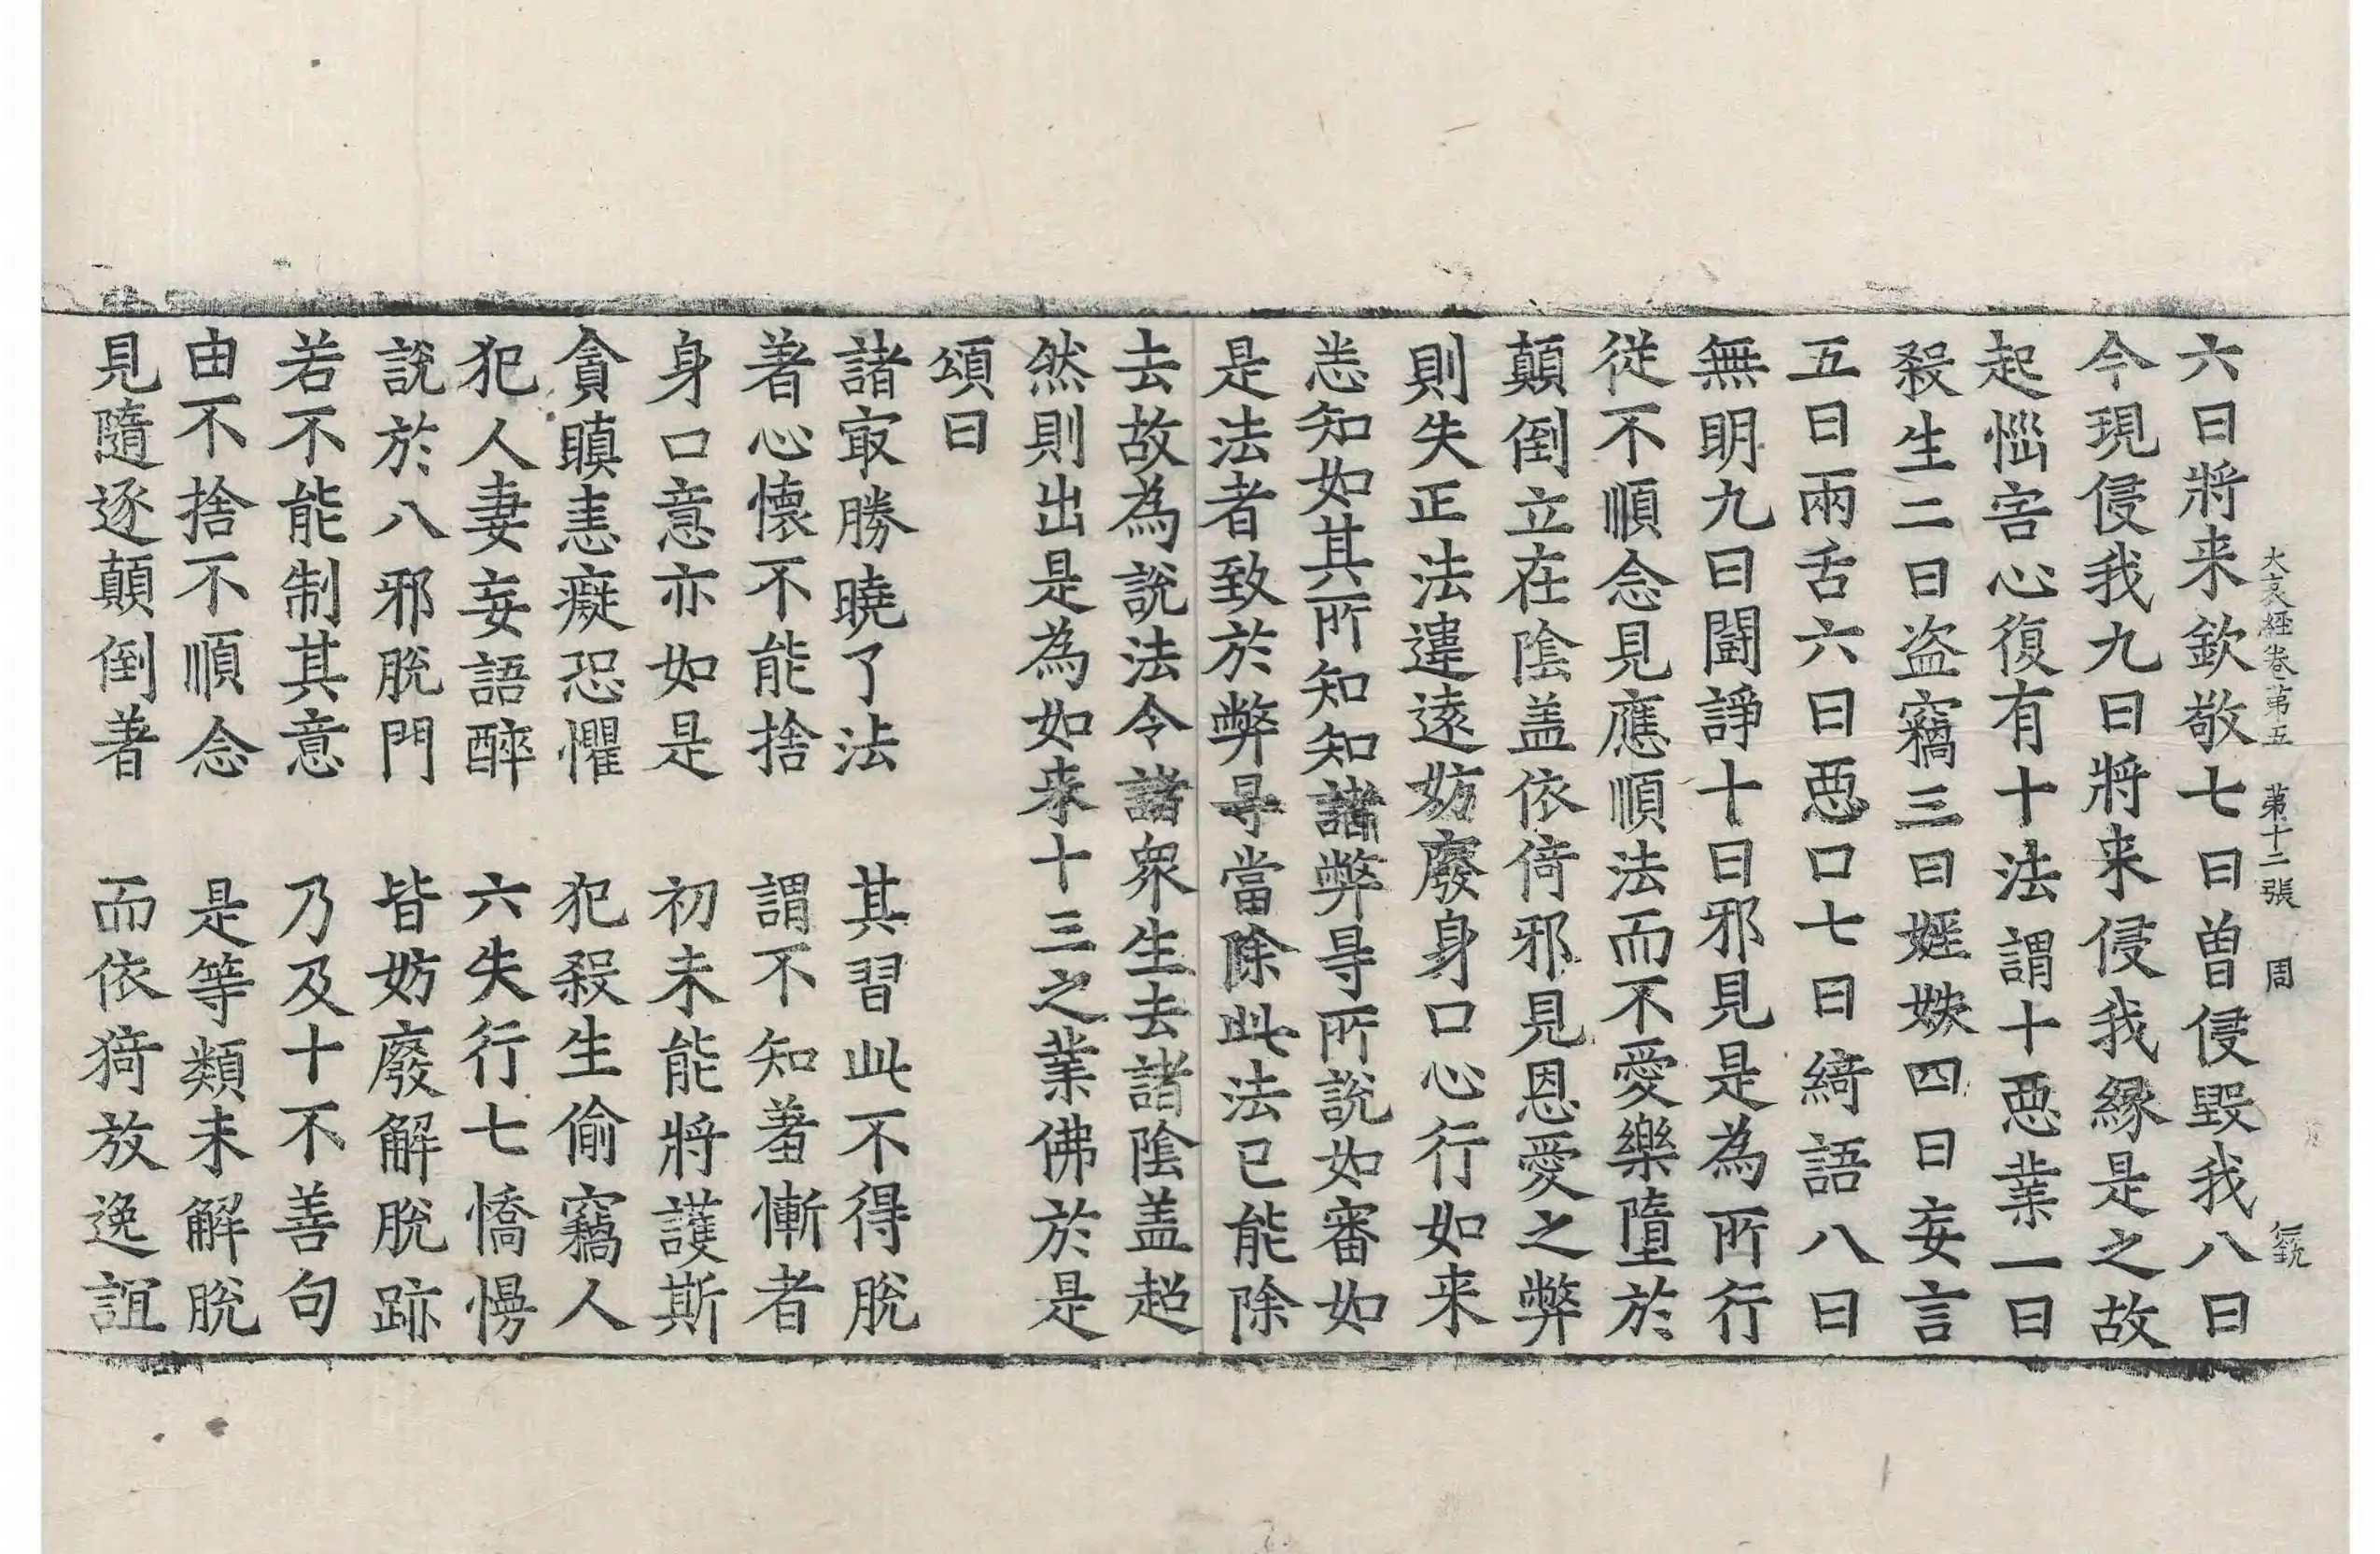 大哀經卷第五　第十二張　周
六曰將来欽敬七曰曽侵毀我八曰
今現侵我九曰將来侵我緣是之故
起惱害心復有十法謂十惡業一曰
殺生二曰盗竊三曰婬妷四曰妄言
五曰兩舌六曰惡口七曰綺語八曰
無明九曰鬪諍十曰邪見是為所行
從不順念見應順法而不愛樂墮於
顛倒立在陰盖依倚邪見恩愛之弊
則失正法違遠妨廢身口心行如来
悉知如其所知知諸弊㝵所說如審如
是法者致於弊㝵當除此法已能除
去故為說法令諸衆生去諸陰盖超
然則出是為如来十三之業佛於是
頌曰
諸㝡勝曉了法　其習此不得脫
著心懷不能捨　謂不知羞慚者
身口意亦如是　初未能將護斯
貪瞋恚癡恐懼　犯殺生偷竊人
犯人妻妄語醉　六失行七憍慢
說於八邪脫門　皆妨廢解脫跡
若不能制其意　乃及十不善句
由不捨不順念　是等類未解脫
見隨逐顛倒著　而依猗放逸誼